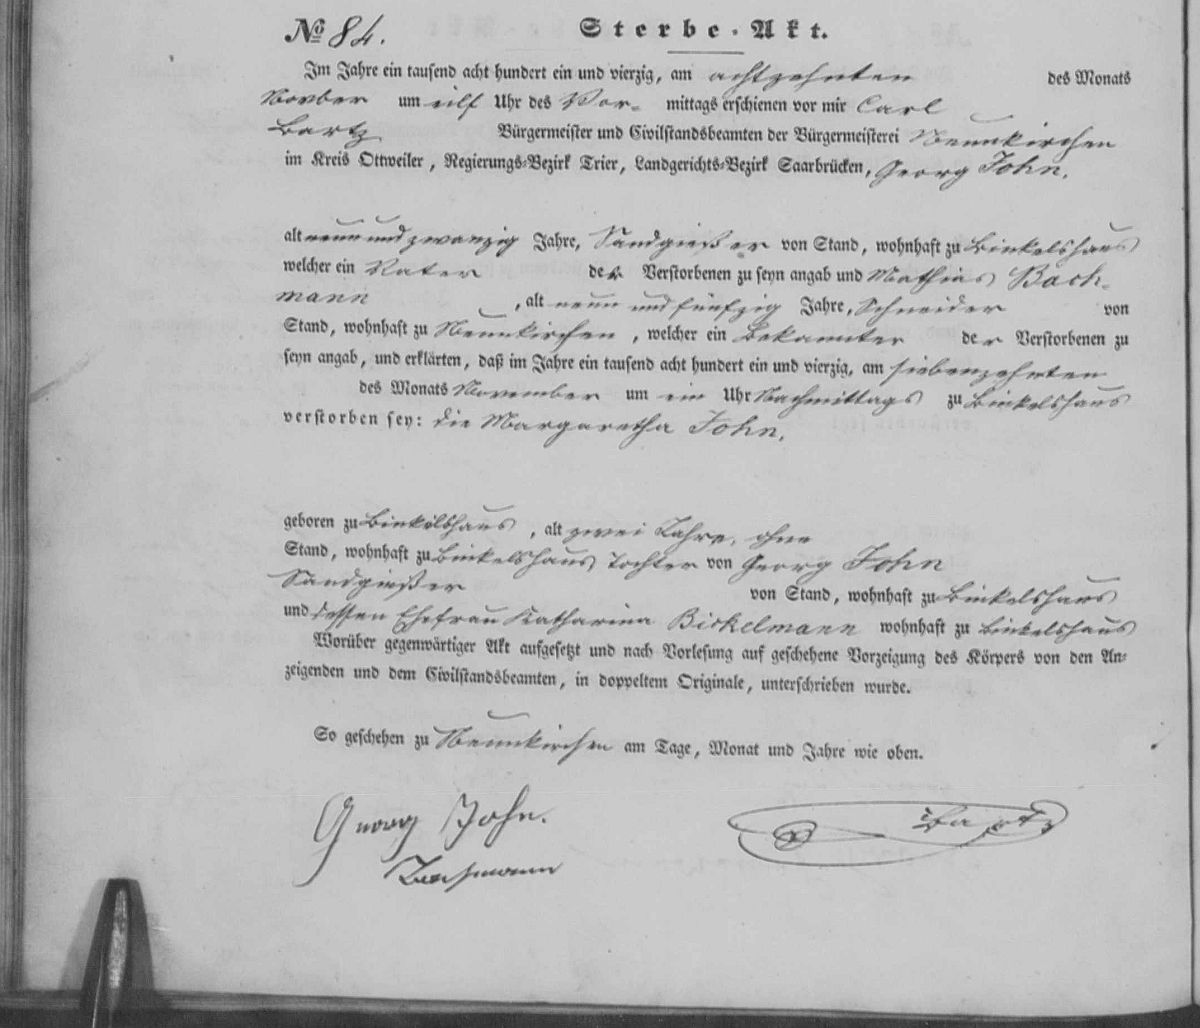 № 84. Sterbe-Akt.
Im Jahre ein tausend acht hundert ein und vierzig, am achtzehnten des Monats
Novber um eilf Uhr des Vor- mittags erschienen vor mir Carl
Bartz Bürgermeister und Civilstandsbeamten der Bürgermeisterei Neunkirchen
im Kreis Ottweiler, Regierungs-Bezirk Trier, Landgerichts-Bezirk Saarbrücken, Georg John,
alt neun und zwanzig Jahre, Sandgießer von Stand, wohnhaft zu Binkelshaus
welcher ein Vater der Verstorbenen zu seyn angab und Mathias Bach-
mann, alt neun und fünfzig Jahre, Schneider von
Stand, wohnhaft zu Neunkirchen, welcher ein Bekannter der Verstorbenen zu
seyn angab, und erklärten, daß im Jahre ein tausend acht hundert ein und vierzig, am siebenzehnten
des Monats November um ein Uhr Nachmittags zu Binkelshaus
verstorben sey: die Margaretha John,
geboren zu Binkelshaus, alt zwei Jahre, ohne
Stand, wohnhaft zu Binkelshaus Tochter von Georg John
Sandgießer von Stand, wohnhaft zu Binkelshaus
und dessen Ehefrau Katharina Bickelmann wohnhaft zu Binkelshaus
Worüber gegenwärtiger Akt aufgesetzt und nach Vorlesung auf geschehene Vorzeigung des Körpers von den An-
zeigenden und dem Civilstandsbeamten, in doppeltem Originale, unterschrieben wurde.
So geschehen zu Neunkirchen am Tage, Monat und Jahre wie oben.
Georg John.
Bachmann
Bartz